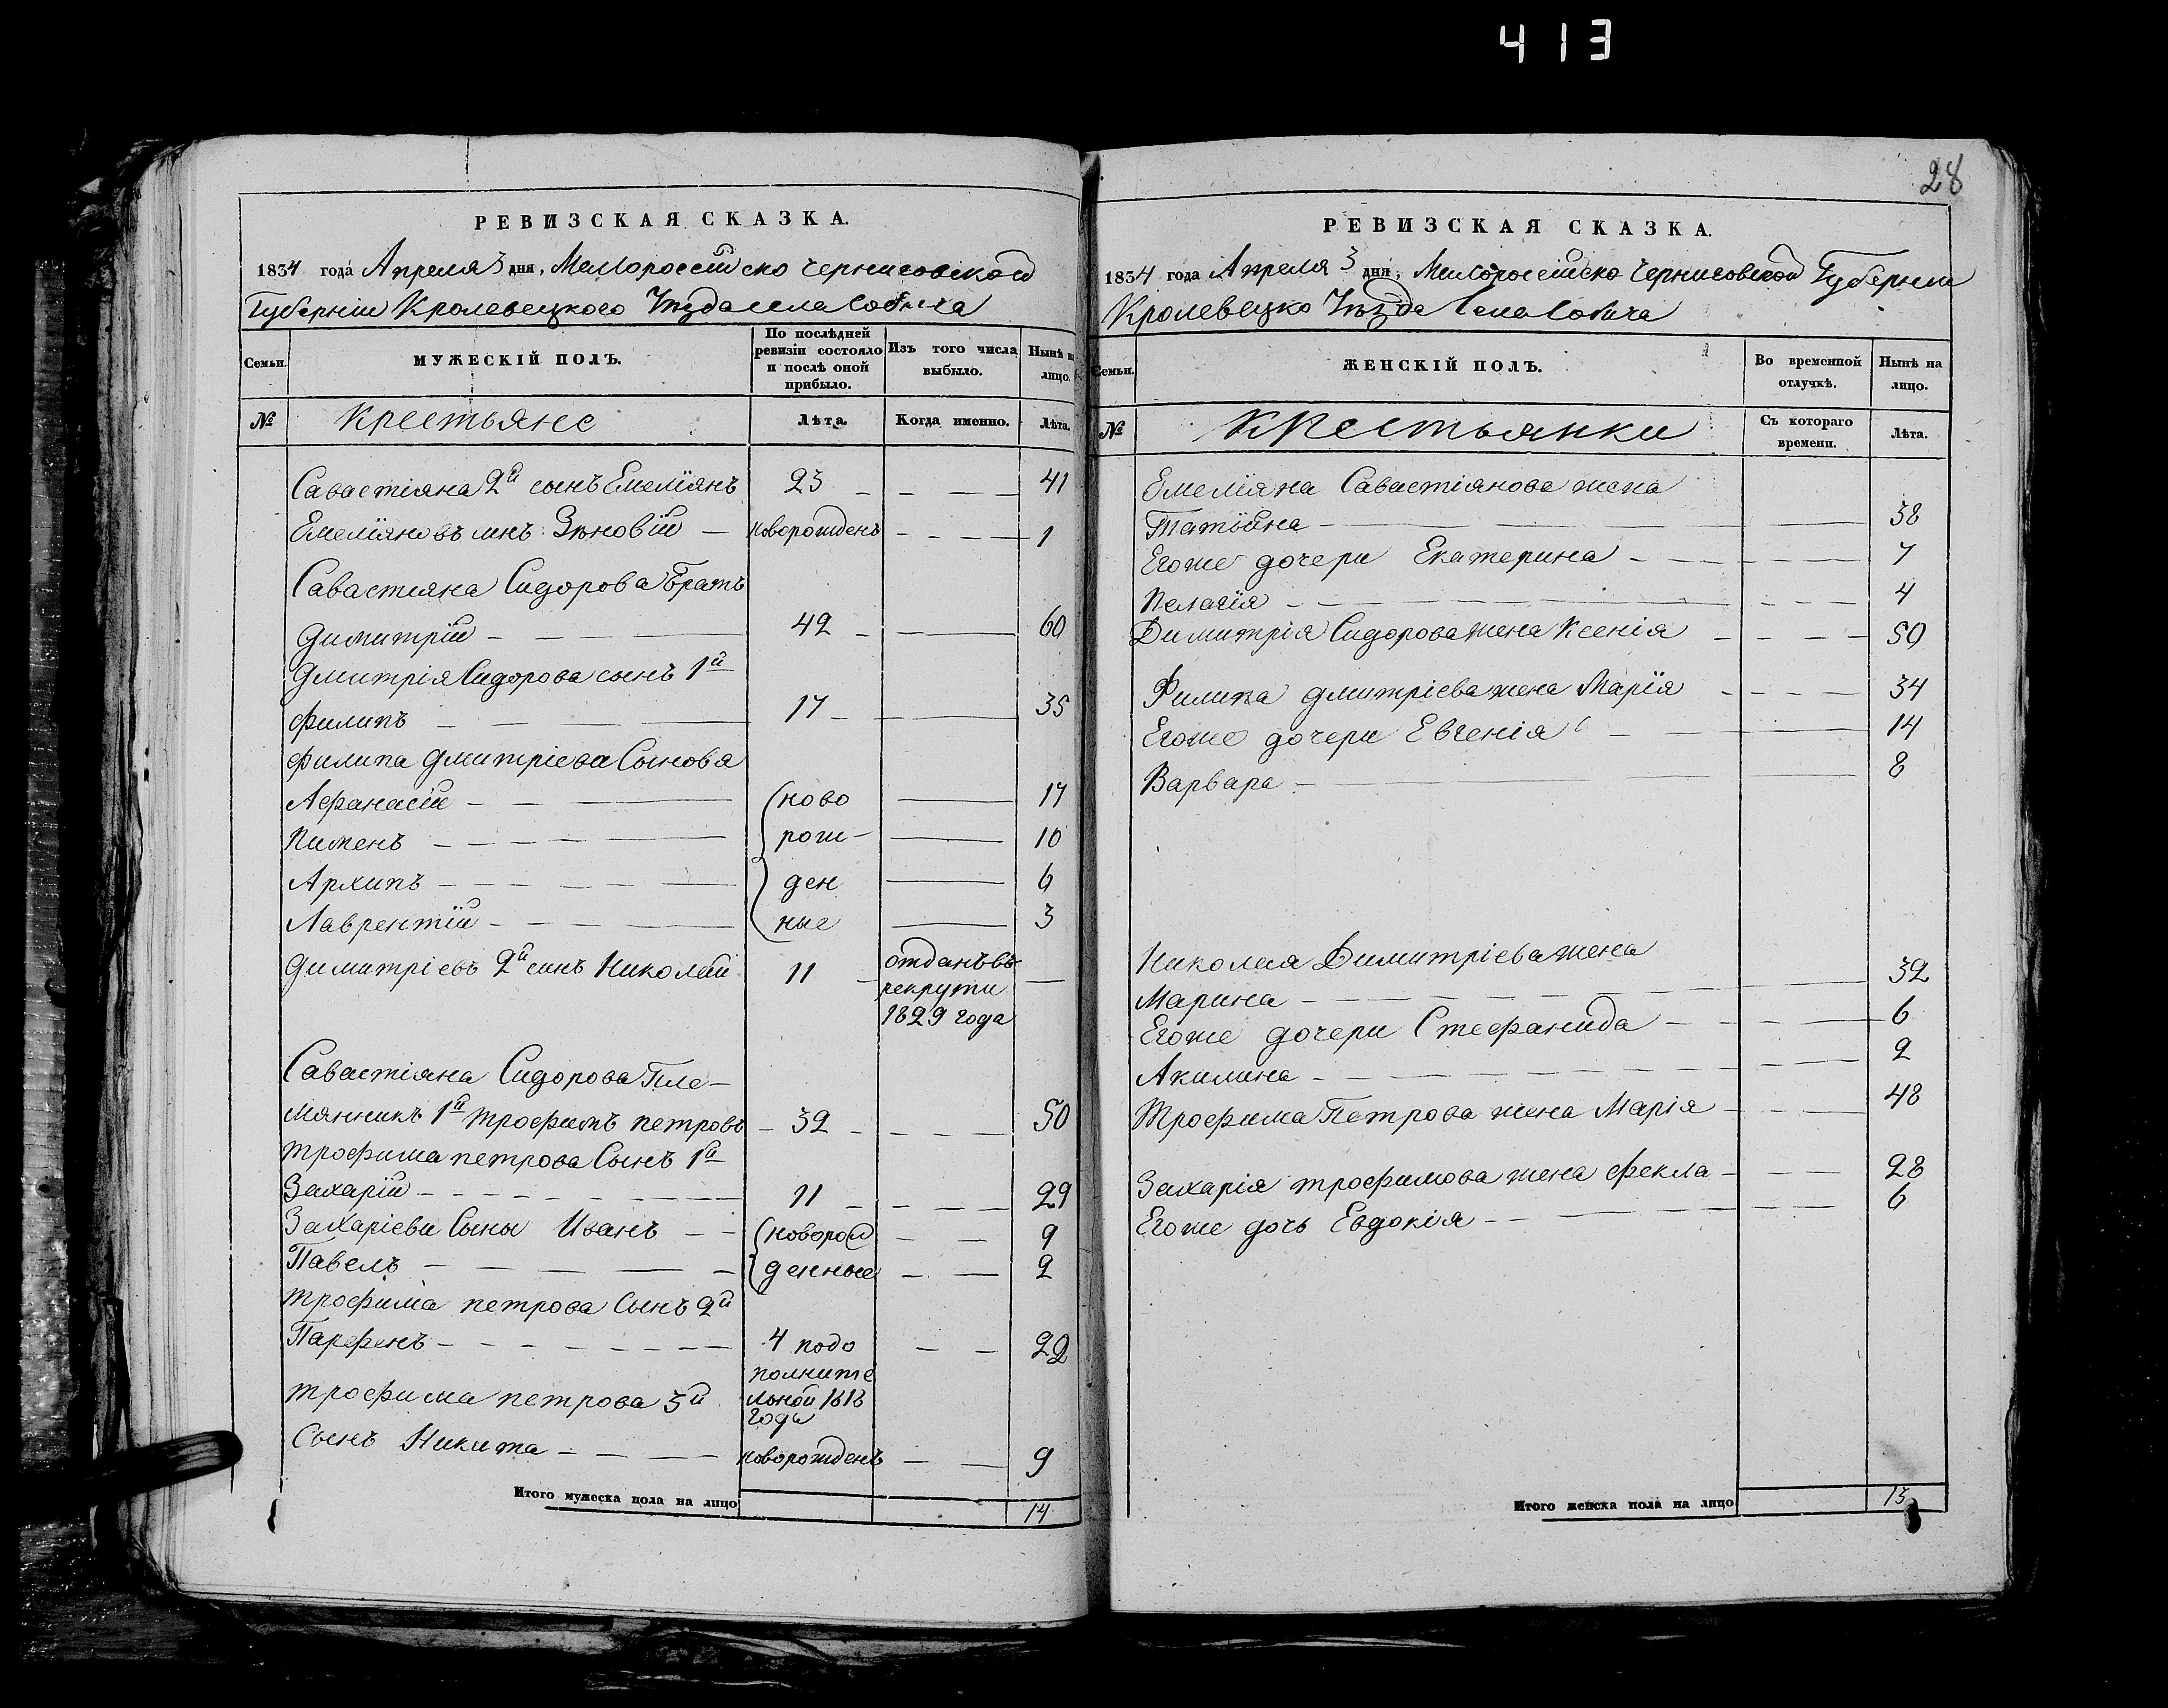 413
РЕВИЗСКАЯ СКАЗКА.
1834 года Апреля 3 дня, Малороссійско Черниговской
Губерніи Кролевецкого Уѣзда села Собича
Семьи.
МУЖЕСКІЙ ПОЛЪ.
По послѣдней ревизіи состояло и послѣ оной прибыло.
Изъ того числа выбыло.
Нынѣ на лицо.
№ Крестьяне Лѣта. Когда именно. Лѣта.
Савастіяна 2й сынъ Емеліянъ 23 41
Емеліяновъ синъ Зѣновій новорожденъ 1
Савастіяна Сидорова Братъ
Димитрій 42 60
Дмитрія Сидорова сынъ 1й
Филипъ 17 35
Филипа Дмитріева Сыновя
Афанасій (ново 17
Пименъ рож- 10
Архипъ ден 6
Лаврентій ные 3
Димитріевъ 2й синъ Николай 11 отданъ въ
рекрути
1829 года
Савастіяна Сидорова Пле-
мянникъ 1й трофимъ петровъ 32 50
трофима петрова Сынъ 1й
Захарій 11 29
Захаріеви Сыны Иванъ (новорож 9
Павелъ денные 2
трофима петрова Сынъ 2й
Парфенъ 4 подо 22
полните
льной 1818
года
трофима петрова 3й
Сынъ Никита новорожденъ 9
Итого мужеска пола на лицо 14
28
РЕВИЗСКАЯ СКАЗКА.
1834 года Апреля 3 дня, Малоросійско Черниговской Губерніи
Кролевецко Уѣзда Села Собича
Семьи.
ЖЕНСКІЙ ПОЛЪ.
Во временной отлучкѣ.
Нынѣ на лицо.
№ Крестьянки Съ котораго времени. Лѣта.
Емеліяна Савастіянова жена
Татіяна 38
Егоже дочери Екатерина 7
Пелагія 4
Димитрія Сидорова жена Ксенія 50
Филипа Дмитріева жена Марія 34
Егоже дочери Евгенія 14
Варвара 8
Николая Димитріева жена
Марина 32
Егоже дочери Стефанида 6
Акилина 2
Трофима Петрова жена Марія 48
Захарія трофимова жена Фекла 28
Егоже дочь Евдокія 6
Итого женска пола на лицо 13